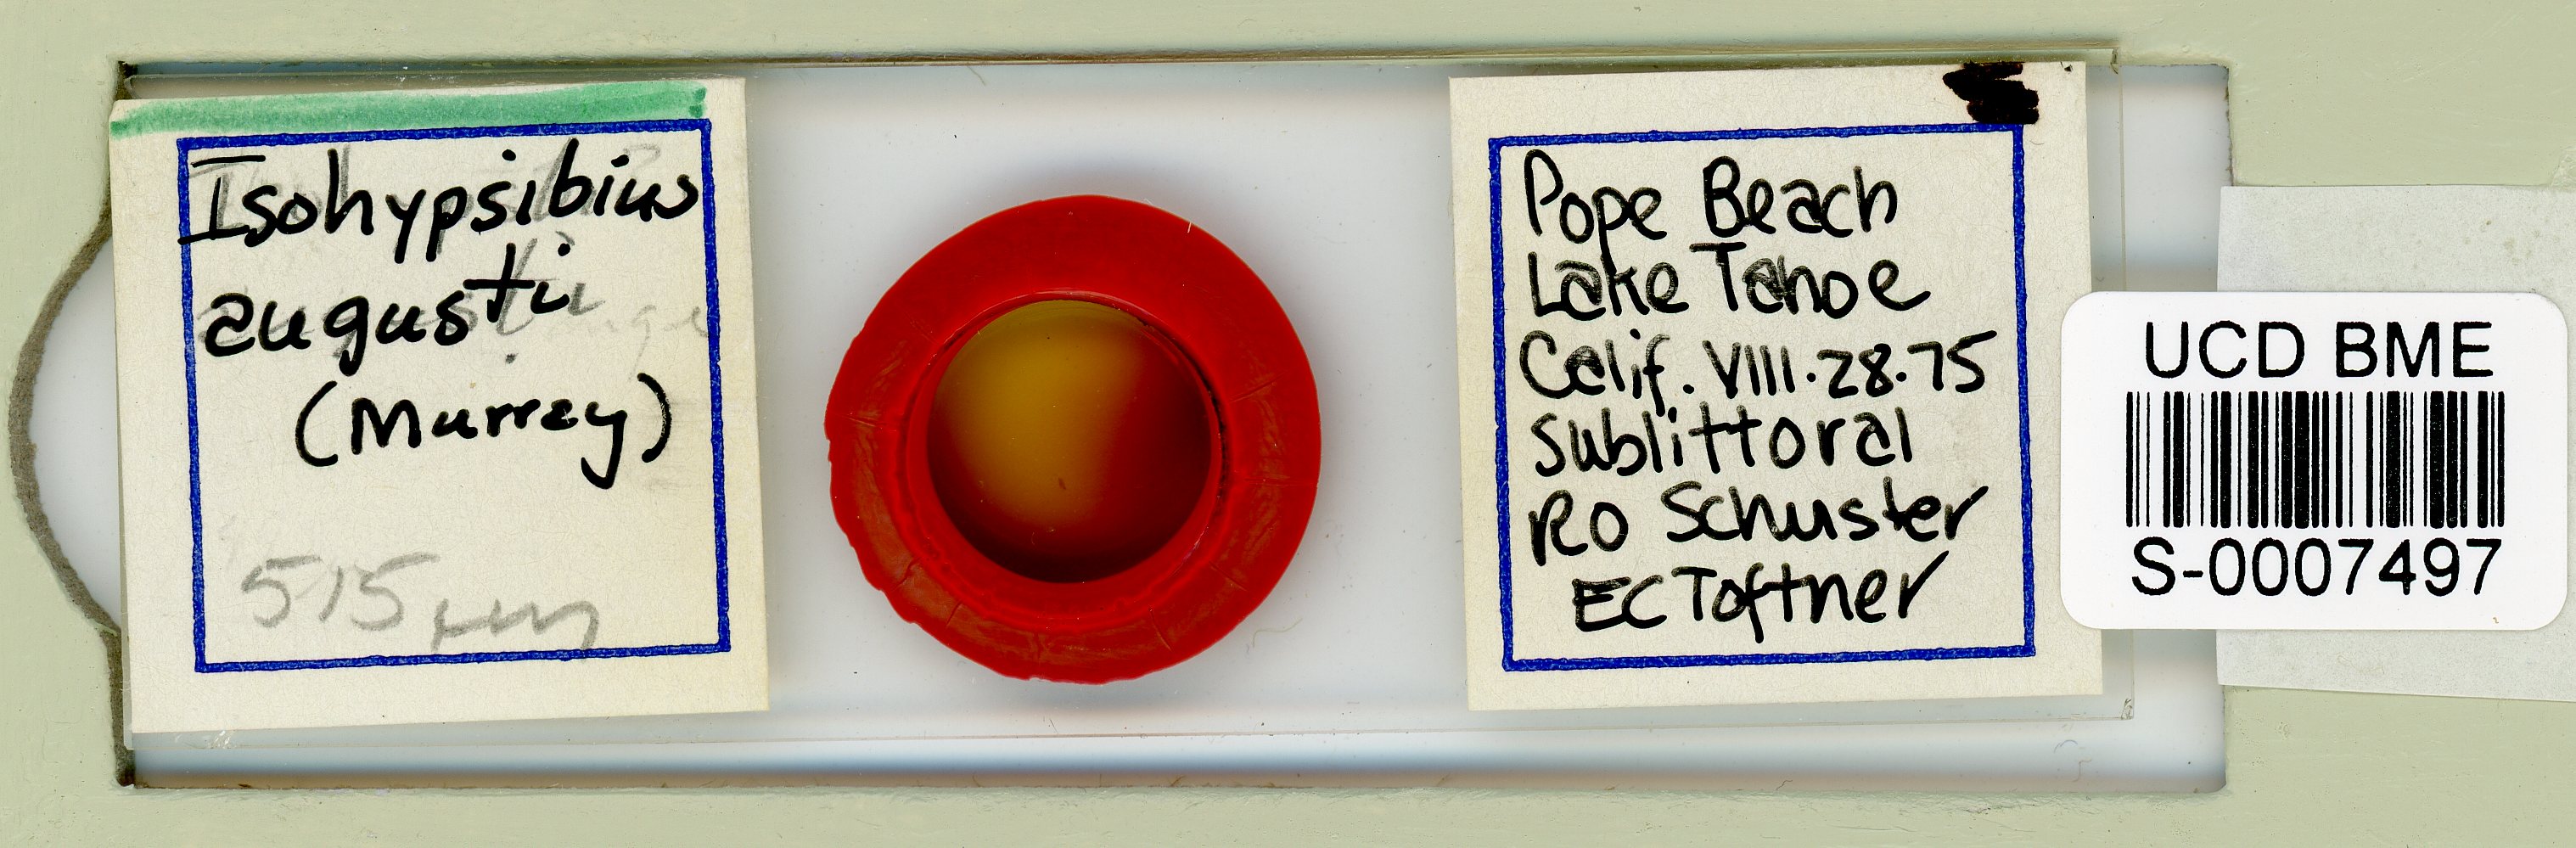 Isohypsibius
augusti
(Murray)
515 µm
Pope Beach
Lake Tahoe
Calif. VIII·28·75
sublittoral
RO Schuster
EC Toftner
UCD BME
S-0007497